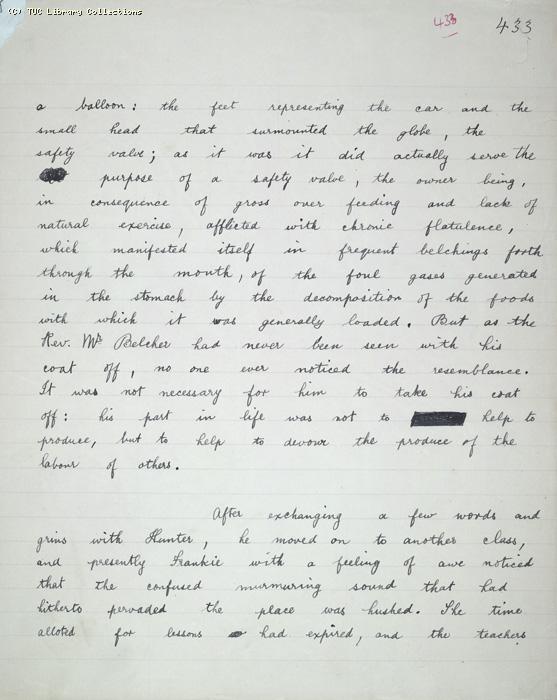 (C) TUC Library Collections
433 433
a balloon: the feet representing the car and the
small head that surmounted the globe, the
safety valve; as it was it did actually serve the
purpose of a safety valve, the owner being,
in consequence of gross over feeding and lack of
natural exercise, afflicted with chronic flatulence,
which manifested itself in frequent belchings forth
through the mouth, of the foul gases generated
in the stomach by the decomposition of the foods
with which it was generally loaded. But as the
Rev. Mr Belcher had never been seen with his
coat off, no one ever noticed the resemblance.
It was not necessary for him to take his coat
off: his part in life was not to help to
produce, but to help to devour the produce of the
labour of others.
After exchanging a few words and
grins with Hunter, he moved on to another class,
and presently Frankie with a feeling of awe noticed
that the confused murmuring sound that had
hitherto pervaded the place was hushed. The time
alloted for lessons had expired, and the teachers